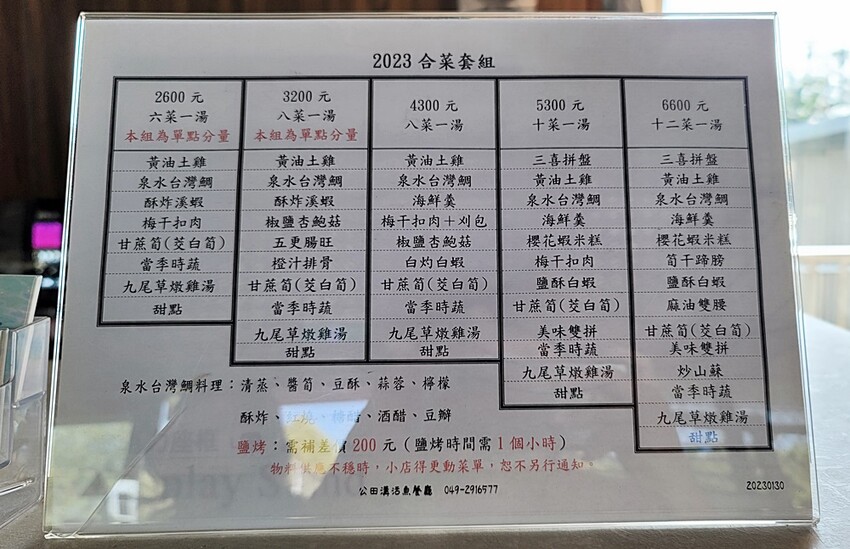 2023 合菜套組
2600 元
六菜一湯
本組為單點分量
黃油土雞
泉水台灣鯛
酥炸溪蝦
梅干扣肉
甘蔗筍(茭白筍)
當季時蔬
九尾草燉雞湯
甜點
3200 元
八菜一湯
本組為單點分量
黃油土雞
泉水台灣鯛
酥炸溪蝦
椒鹽杏鮑菇
五更腸旺
橙汁排骨
甘蔗筍(茭白筍)
當季時蔬
九尾草燉雞湯
甜點
4300 元
八菜一湯
黃油土雞
泉水台灣鯛
海鮮羹
梅干扣肉＋刈包
椒鹽杏鮑菇
白灼白蝦
甘蔗筍(茭白筍)
當季時蔬
九尾草燉雞湯
甜點
5300 元
十菜一湯
三喜拼盤
黃油土雞
泉水台灣鯛
海鮮羹
櫻花蝦米糕
梅干扣肉
鹽酥白蝦
甘蔗筍(茭白筍)
美味雙拼
當季時蔬
九尾草燉雞湯
甜點
6600 元
十二菜一湯
三喜拼盤
黃油土雞
泉水台灣鯛
海鮮羹
櫻花蝦米糕
筍干蹄膀
鹽酥白蝦
麻油雙腰
甘蔗筍(茭白筍)
美味雙拼
炒山蘇
當季時蔬
九尾草燉雞湯
甜點
泉水台灣鯛料理：清蒸、醬筍、豆酥、蒜蓉、檸檬
酥炸、紅燒、糖醋、酒醋、豆瓣
鹽烤：需補差價 200 元 ( 鹽烤時間需 1 個小時 )
物料供應不穩時，小店得更動菜單，恕不另行通知。
公田溝活魚餐廳 049-2916577
20230130